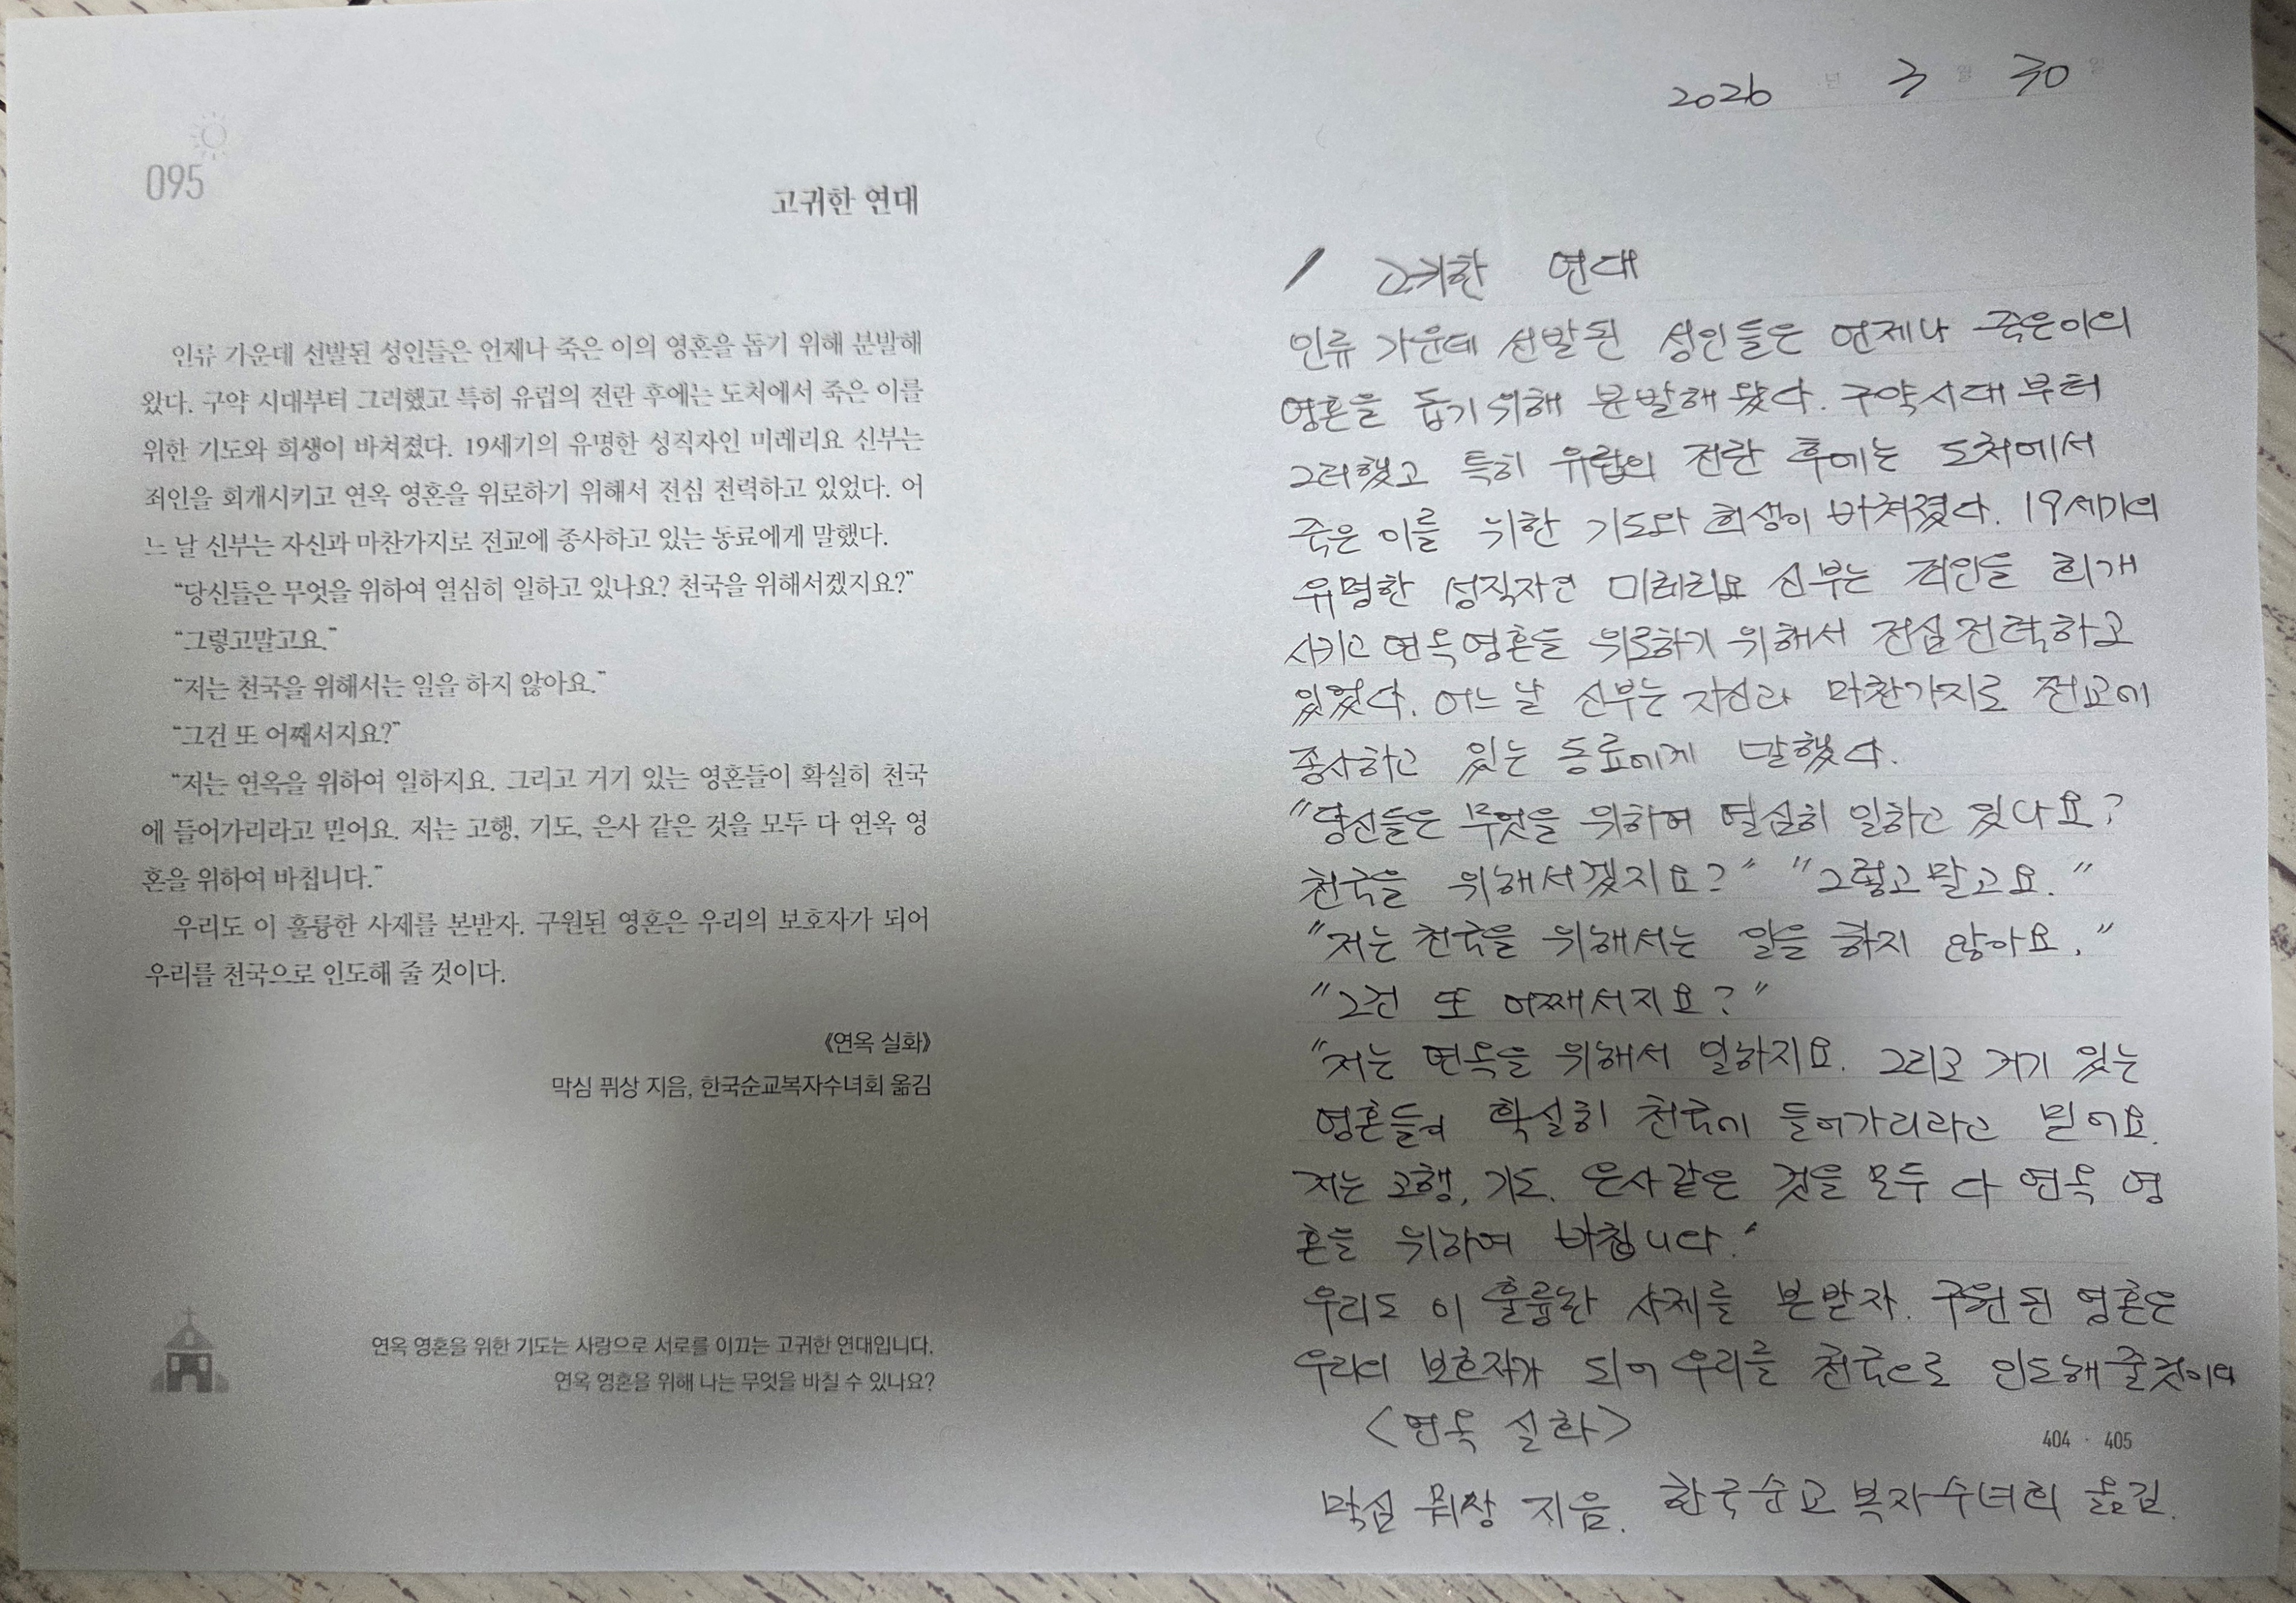 095
고귀한 연대
인류 가운데 선발된 성인들은 언제나 죽은 이의 영혼을 돕기 위해 분발해
왔다. 구약 시대부터 그러했고 특히 유럽의 전란 후에는 도처에서 죽은 이를
위한 기도와 희생이 바쳐졌다. 19세기의 유명한 성직자인 미레리요 신부는
죄인을 회개시키고 연옥 영혼을 위로하기 위해서 전심 전력하고 있었다. 어
느 날 신부는 자신과 마찬가지로 전교에 종사하고 있는 동료에게 말했다.
“당신들은 무엇을 위하여 열심히 일하고 있나요? 천국을 위해서겠지요?”
“그렇고말고요.”
“저는 천국을 위해서는 일을 하지 않아요.”
“그건 또 어째서지요?”
“저는 연옥을 위하여 일하지요. 그리고 거기 있는 영혼들이 확실히 천국
에 들어가리라고 믿어요. 저는 고행, 기도, 은사 같은 것을 모두 다 연옥 영
혼을 위하여 바칩니다.”
우리도 이 훌륭한 사제를 본받자. 구원된 영혼은 우리의 보호자가 되어
우리를 천국으로 인도해 줄 것이다.
《연옥 실화》
막심 퓌상 지음, 한국순교복자수녀회 옮김
연옥 영혼을 위한 기도는 사랑으로 서로를 이끄는 고귀한 연대입니다.
연옥 영혼을 위해 나는 무엇을 바칠 수 있나요?
2026 년 3 월 30 일
/ 고귀한 연대
인류 가운데 선발된 성인들은 언제나 죽은이의
영혼을 돕기 위해 분발해 왔다. 구약시대 부터
그러했고 특히 유럽의 전란 후에는 도처에서
죽은 이를 위한 기도와 희생이 바쳐졌다. 19세기의
유명한 성직자인 미레리요 신부는 죄인을 회개
시키고 연옥영혼을 위로하기 위해서 전심전력하고
있었다. 어느 날 신부는 자신과 마찬가지로 전교에
종사하고 있는 동료에게 말했다.
"당신들은 무엇을 위하여 열심히 일하고 있나요?
천국을 위해서겠지요?" "그렇고말고요."
"저는 천국을 위해서는 일을 하지 않아요."
"그건 또 어째서지요?"
"저는 연옥을 위해서 일하지요. 그리고 거기 있는
영혼들이 확실히 천국에 들어가리라고 믿어요.
저는 고행, 기도, 은사같은 것을 모두 다 연옥 영
혼을 위하여 바칩니다."
우리도 이 훌륭한 사제를 본받자. 구원된 영혼은
우리의 보호자가 되어 우리를 천국으로 인도해 줄것이다
<연옥 실화>
404 · 405
막심 퓌상 지음. 한국순교복자수녀회 옮김.